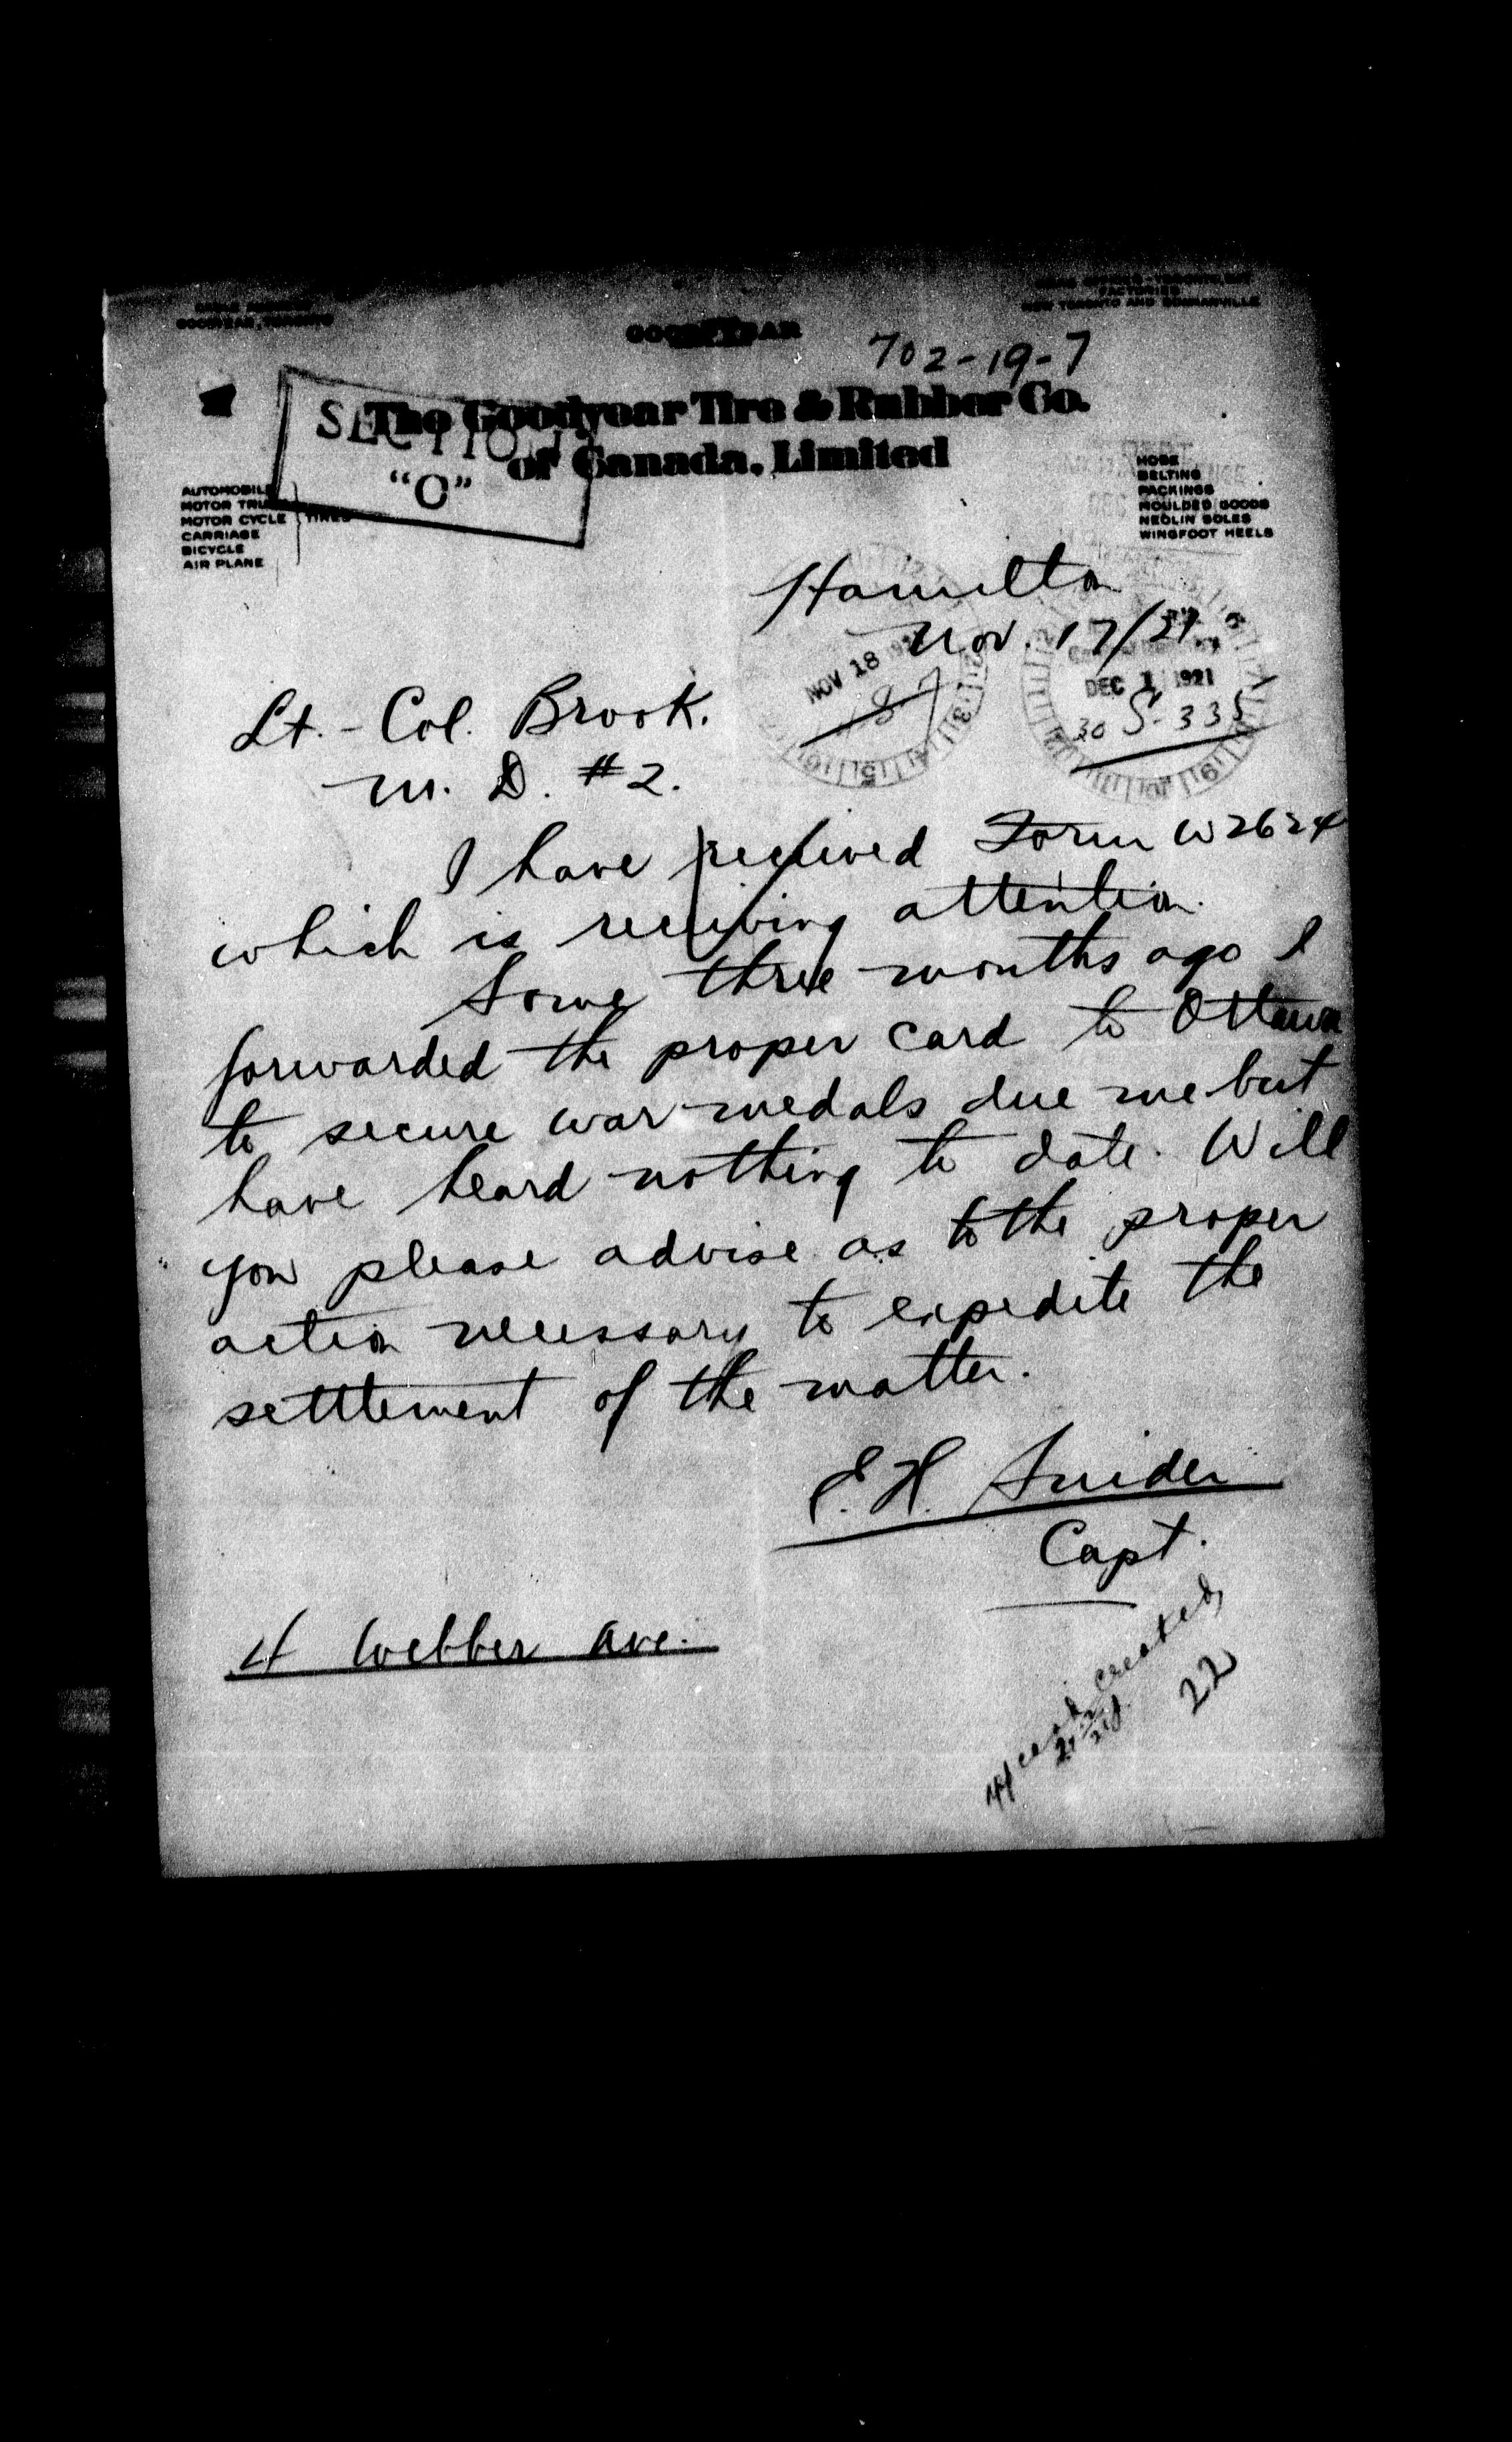 GOODYEAR, TORONTO
FACTORIES
NEW TORONTO AND BOWMANVILLE
GOODYEAR
702-19-7
The Goodyear Tire & Rubber Co.
of Canada, Limited
SECTION
"C"
AUTOMOBILE
MOTOR TRUCK
MOTOR CYCLE
CARRIAGE
BICYCLE
AIR PLANE
TIRES
HOSE
BELTING
PACKINGS
MOULDED GOODS
NEOLIN SOLES
WINGFOOT HEELS
Hamilton
Nov. 17/21
NOV 18
DEC 1 1921
30 S-335
Lt.-Col. Brook.
M. D. #2.
I have received Form W2624
which is receiving attention.
Some three months ago I
forwarded the proper card to Ottawa
to secure war medals due me but
have heard nothing to date. Will
you please advise as to the proper
action necessary to expedite the
settlement of the matter.
E. H. Snider
Capt.
4 Webber Ave.
created
22